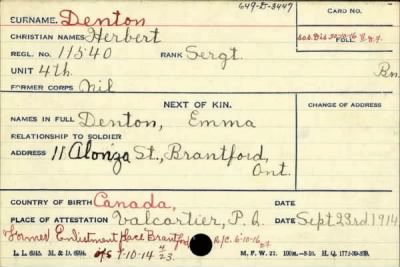 649-D-3447
SURNAME. Denton
CARD NO.
CHRISTIAN NAMES Herbert
REGL. NO. 11540 RANK Sergt.
FOLL.
UNIT 4th. Bn.
FORMER CORPS Nil
NEXT OF KIN.
CHANGE OF ADDRESS
NAMES IN FULL Denton, Emma
RELATIONSHIP TO SOLDIER
ADDRESS 11 Alonza St., Brantford,
Ont.
COUNTRY OF BIRTH Canada,
PLACE OF ATTESTATION Valcartier, P.Q. DATE Sept 23rd 1914
Former Enlistment Place Brantford R/C. 6-10-16
L. L. 6945. M. & D. 6994. o/s 1-10-14 M.F.W. 22. H.Q. 1772-39-839.